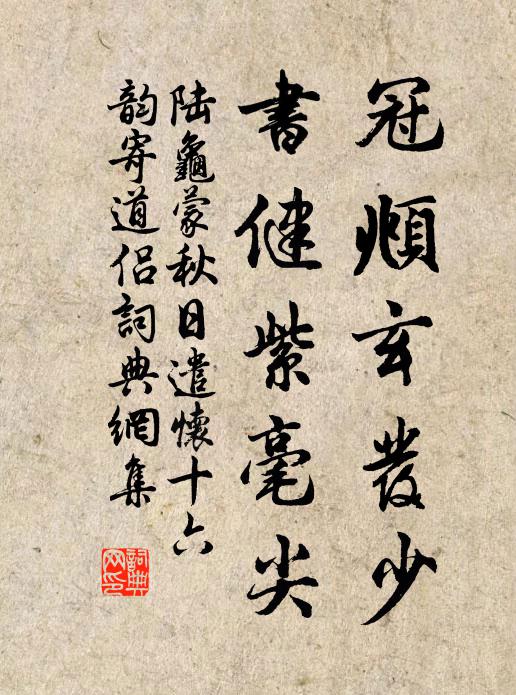 冠頫玄發少
書健紫毫尖
陸龜蒙秋日遣懷十六
韵寄道侶詞典網集
詞典
网印